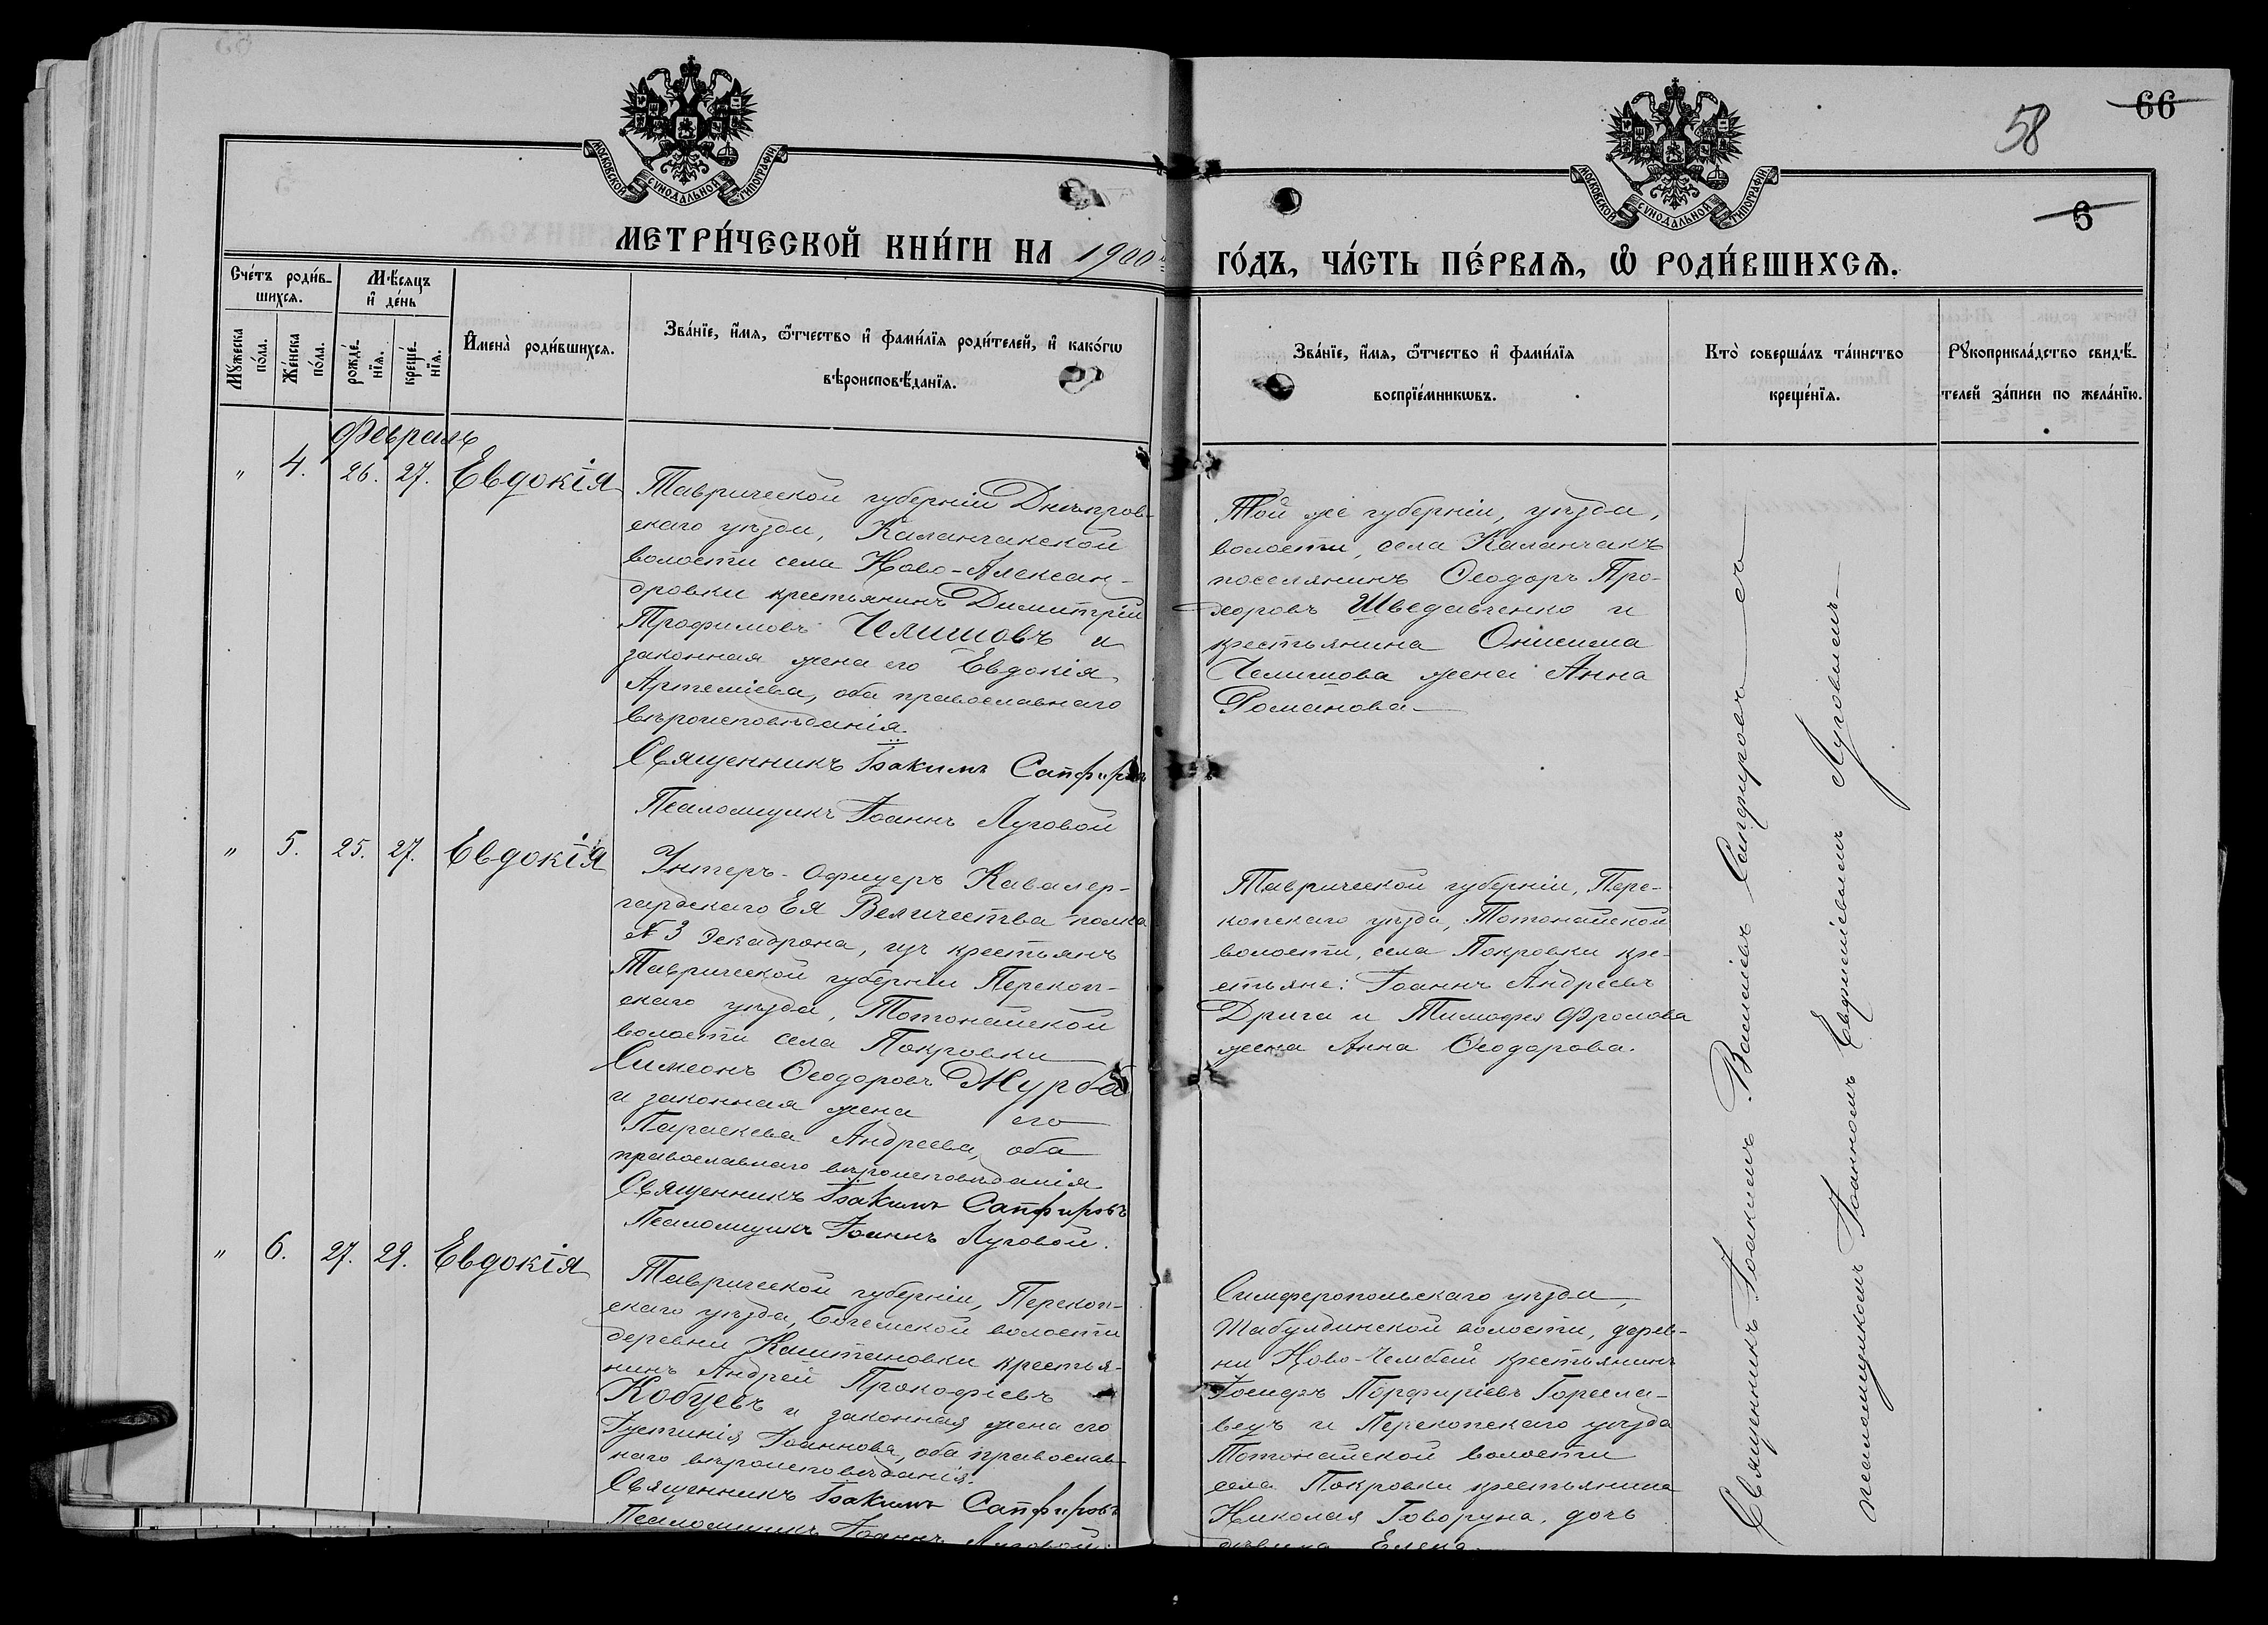 58
66
6
МОСКОВСКОЙ СѴНОДАЛЬНОЙ ТИПОГРАФІИ
МОСКОВСКОЙ СѴНОДАЛЬНОЙ ТИПОГРАФІИ
МЕТРИ́ЧЕСКОЙ КНИ́ГИ НА 1900й
ГО́ДЪ, ЧА́СТЬ ПЕ́РВАѦ, Ѽ РОДИ́ВШИХСѦ.
Сче́тъ роди́в-
шихсѧ.
Мꙋ́жеска
по́ла.
Же́нска
по́ла.
Мѣ́сѧцъ
и҆ де́нь
рожде́-
нїѧ.
креще́-
нїѧ.
И҆мена̀ роди́вшихсѧ.
Зва́нїе, и҆́мѧ, ѻ҆́тчество и҆ фами́лїѧ роди́телей, и҆ како́гѡ
вѣроисповѣ́данїѧ.
Зва́нїе, и҆́мѧ, ѻ҆́тчество и҆ фами́лїѧ
воспрїе́мникѡвъ.
Кто̀ соверша́лъ та́инство
креще́нїѧ.
Рꙋкоприкла́дство свидѣ́-
телей за́писи по жела́нїю.
Февраль
" 4. 26. 27. Евдокія
Таврической губерніи Днѣпров-
скаго уѣзда, Каланчакской
волости села Ново-Алексан-
дровки крестьянинъ Димитрій
Трофимовъ Челишовъ и
законная жена его Евдокія
Артеміева, оба православнаго
вѣроисповѣданія.
Священникъ Іоакимъ Сапфировъ
Псаломщикъ Іоаннъ Луговой
Той же губерніи, уѣзда,
волости, села Каланчакъ
поселянинъ Ѳеодоръ Про-
хоровъ Шведавченко и
крестьянина Онисима
Челишова жена Анна
Романова
" 5. 25. 27. Евдокія
Унтеръ-Офицеръ Кавалер-
гардскаго Ея Величества полка
№ 3 Эскадрона, изъ крестьянъ
Таврической губерніи Перекоп-
скаго уѣзда, Тотонайской
волости села Покровки
Симеонъ Ѳеодоровъ Журба
и законная жена его
Параскева Андреева, оба
православнаго вѣроисповѣданія
Священникъ Іоакимъ Сапфировъ
Псаломщикъ Іоаннъ Луговой.
Таврической губерніи, Пере-
копскаго уѣзда, Тотонайской
волости, села Покровки кре-
стьяне: Іоаннъ Андреевъ
Дрига и Тимофея Фролова
жена Анна Ѳеодорова.
" 6. 27. 29. Евдокія
Таврической губерніи, Перекоп-
скаго уѣзда, Богемской волости
деревни Каштановки крестья-
нинъ Андрей Прокофіевъ
Кобцевъ и законная жена его
Іустинія Іоаннова, оба православ-
наго вѣроисповѣданія.
Священникъ Іоакимъ Сапфировъ
Псаломщикъ Іоаннъ Луговой.
Симферопольскаго уѣзда,
Табулдинской волости, дерев-
ни Ново-Чембай крестьянинъ
Іосифъ Порфиріевъ Горесла-
вецъ и Перекопскаго уѣзда
Тотонайской волости
села Покровки крестьянина
Николая Говоруна, дочь
дѣвица Елена.
Священникъ Іоакимъ Василіевъ Сапфировъ съ
псаломщикомъ Іоанномъ Евфиміевымъ Луговымъ